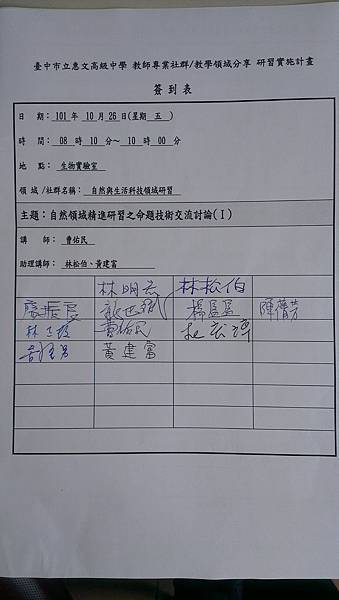 臺中市立惠文高級中學 教師專業社群/教學領域分享 研習實施計畫
簽到表
日 期：101 年 10 月 26 日(星期 五 )
時 間： 08 時 10 分～ 10 時 00 分
地 點： 生物實驗室
領域/社群名稱： 自然與生活科技領域研習
主題：自然領域精進研習之命題技術交流討論(I)
講 師： 曹佑民
助理講師： 林松伯、黃建富
林明 林松伯
曹佑民
黃建富